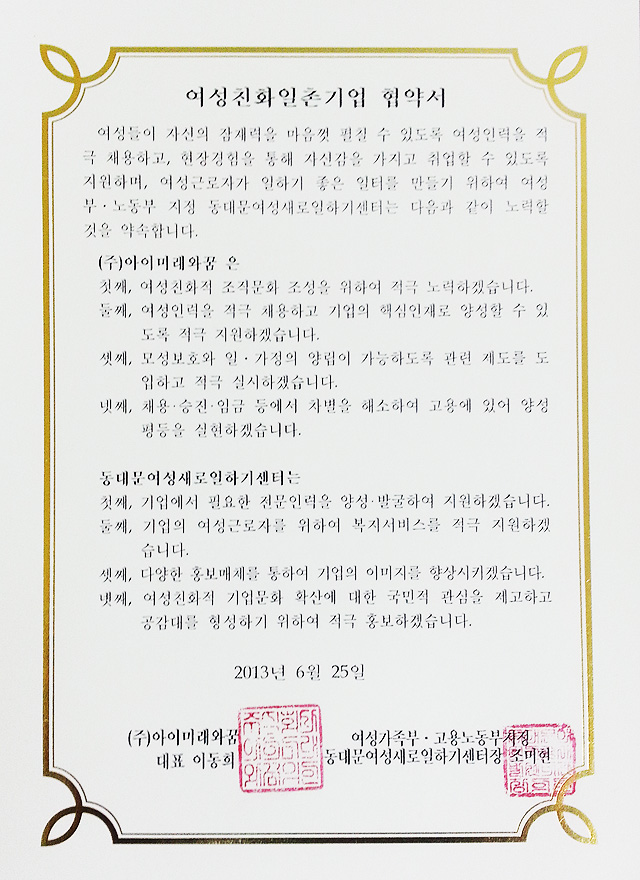 여성친화일촌기업 협약서
여성들이 자신의 잠재력을 마음껏 펼칠 수 있도록 여성인력을 적
극 채용하고, 현장경험을 통해 자신감을 가지고 취업할 수 있도록
지원하며, 여성근로자가 일하기 좋은 일터를 만들기 위하여 여성
부·노동부 지정 동대문여성새로일하기센터는 다음과 같이 노력할
것을 약속합니다.
(주)아이미래와꿈 은
첫째, 여성친화적 조직문화 조성을 위하여 적극 노력하겠습니다.
둘째, 여성인력을 적극 채용하고 기업의 핵심인재로 양성할 수 있
도록 적극 지원하겠습니다.
셋째, 모성보호와 일·가정의 양립이 가능하도록 관련 제도를 도
입하고 적극 실시하겠습니다.
넷째, 채용·승진·임금 등에서 차별을 해소하여 고용에 있어 양성
평등을 실현하겠습니다.
동대문여성새로일하기센터는
첫째, 기업에서 필요한 전문인력을 양성·발굴하여 지원하겠습니다.
둘째, 기업의 여성근로자를 위하여 복지서비스를 적극 지원하겠
습니다.
셋째, 다양한 홍보매체를 통하여 기업의 이미지를 향상시키겠습니다.
넷째, 여성친화적 기업문화 확산에 대한 국민적 관심을 제고하고
공감대를 형성하기 위하여 적극 홍보하겠습니다.
2013년 6월 25일
(주)아이미래와꿈
대표 이동희
여성가족부·고용노동부지정
동대문여성새로일하기센터장 조미현